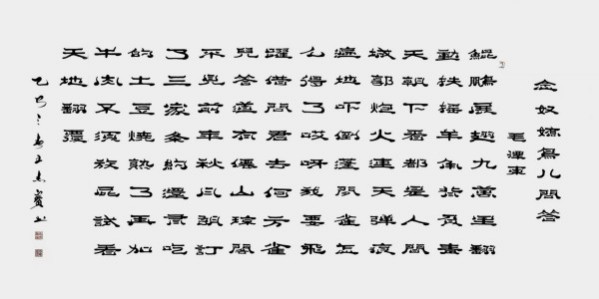 念奴嬌鳥儿問答
毛澤東
鯤鵬展翅九萬里翻
動扶搖羊角背負青
天朝下看都是人間
城郭炮火連天彈痕
遍地吓倒蓬間雀怎
么得了哎呀我要飛
躍借問君去何方雀
兒答道有僊山瓊閣
不見前年秋月朗訂
了三家條約還有吃
的土豆燒熟了再加
牛肉不須放屁試看
天地翻覆